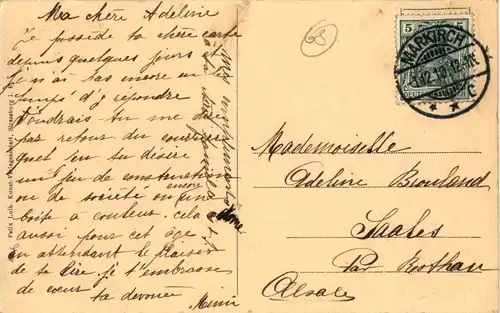 Ma chère Adeline
Je possède ta chère carte
depuis quelques jours
je n'ai pas encore eu le
temps d'y répondre
Voudrais tu me dire
par retour du courrier
quel jeu tu désire
un jeu de construction
ou de société ou encore une
boîte a couleur. cela
aussi pour cet âge
En attendant le plaisir
de te lire je t'embrasse
de coeur
ta dévouée Mimi
Mademoiselle
Adeline Brouland
Saales
Par Rothau
Alsace
MARKIRCH
5 5
C
68
Felix Luib, Kunst-Verlagsanstalt, Strassburg i. E.